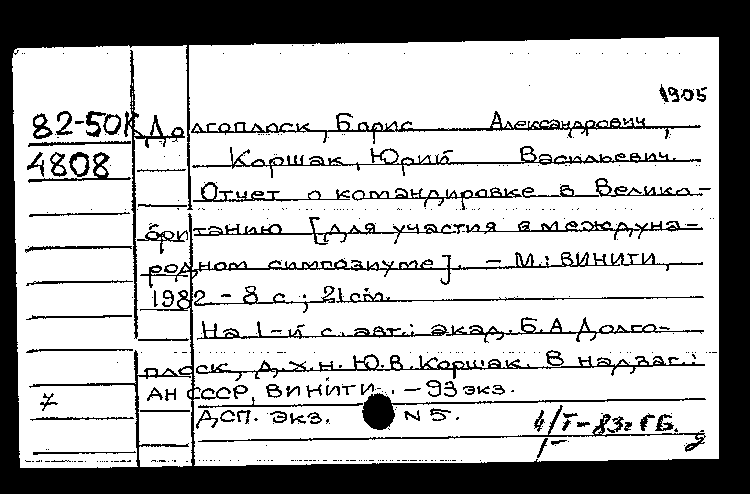 1905
82-50К Долгоплоск, Борис Александрович,
4808 Коршак, Юрий Васильевич.
Отчет о командировке в Велико-
британию [для участия в междуна-
родном симпозиуме]. - М.: ВИНИТИ,
1982 - 8 с.; 21 cm.
На 1-й с. авт.: акад. Б.А Долго-
плоск, д.х.н. Ю.В. Коршак. В надзаг.:
АН СССР, ВИНИТИ. - 93 экз.
ДСП. экз. N 5.